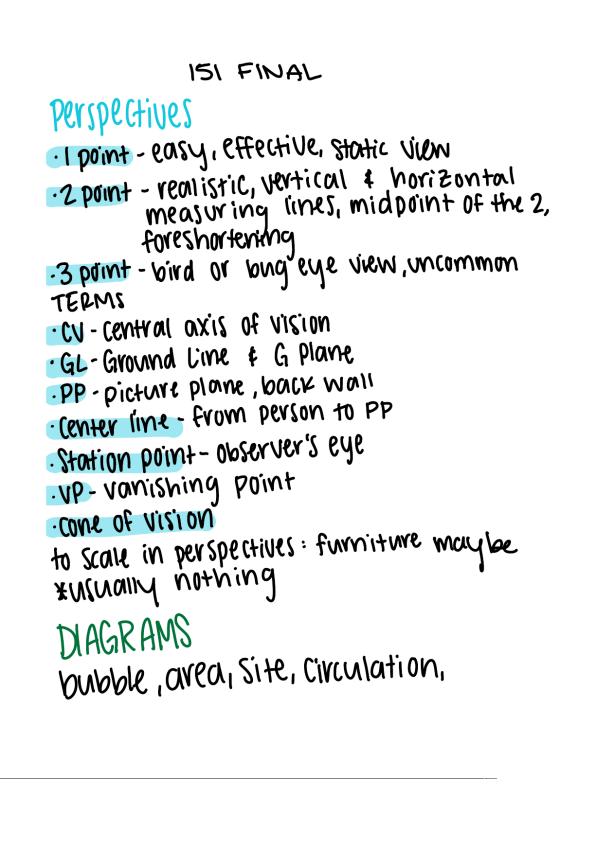 151 FINAL
Perspectives
· 1 point - easy, effective, static view
· 2 point - realistic, vertical & horizontal
measuring lines, midpoint of the 2,
foreshortening
· 3 point - bird or bug eye view, uncommon
TERMS
· CV - central axis of vision
· GL - Ground Line & G Plane
· PP - picture plane, back wall
· Center line - from person to PP
· Station point - observer's eye
· VP - vanishing point
· cone of vision
to scale in perspectives: furniture maybe
*usually nothing
DIAGRAMS
bubble, area, site, circulation,